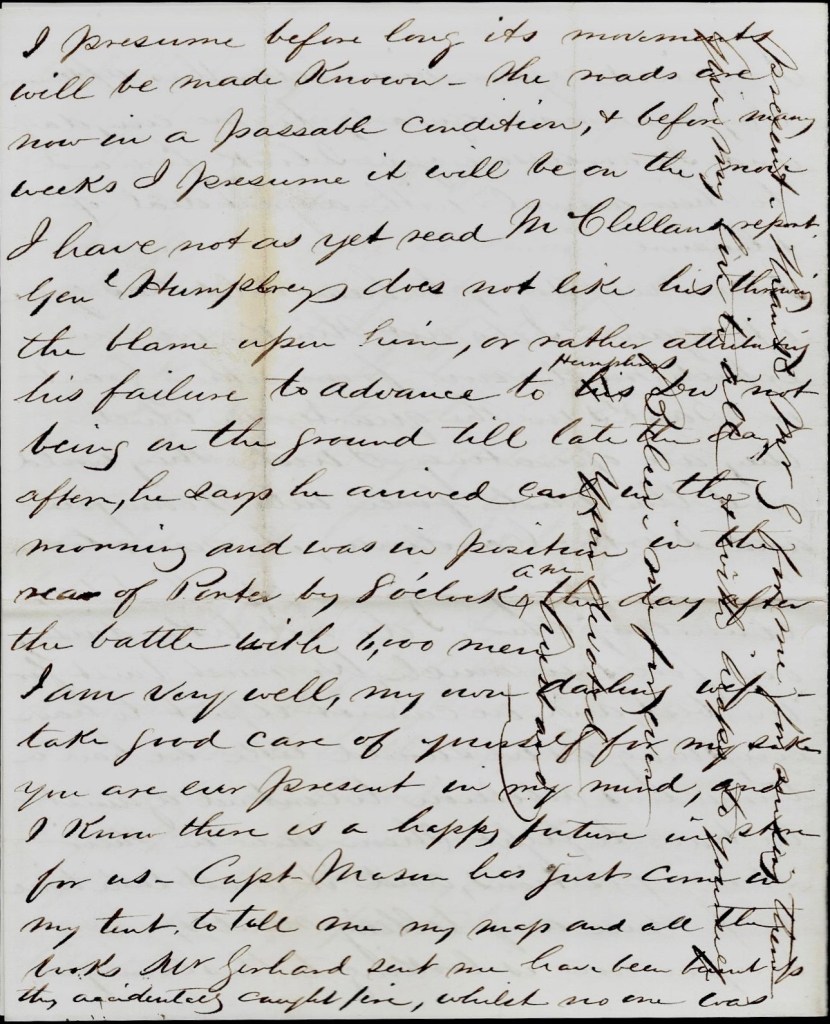 I presume before long its movements
will be made Known – The roads are
now in a passable condition, & before many
weeks I presume it will be on the move
I have not as yet read McClellans report.
Genl Humphreys does not like his throwing
the blame upon him, or rather attributing
Humphreys
his failure to advance to his Div not
being on the ground till late the day
after, he says he arrived early in the
morning and was in position in the
rear of Porter by 8 o'clock am the day after
the battle with 6,000 men
I am very well, my own darling wife –
take good care of yourself for my sake
you are ever present in my mind, and
I Know there is a happy future in store
for us – Capt Mason has just come in
my tent, to tell me my map and all the
books Mr Gerhard sent me have been burnt up
they accidentally caught fire, whilst no one was
present. Thank Mr G for me for sending them
Give my love to all, & with to yourself
Believe me forever
Your devoted
husband